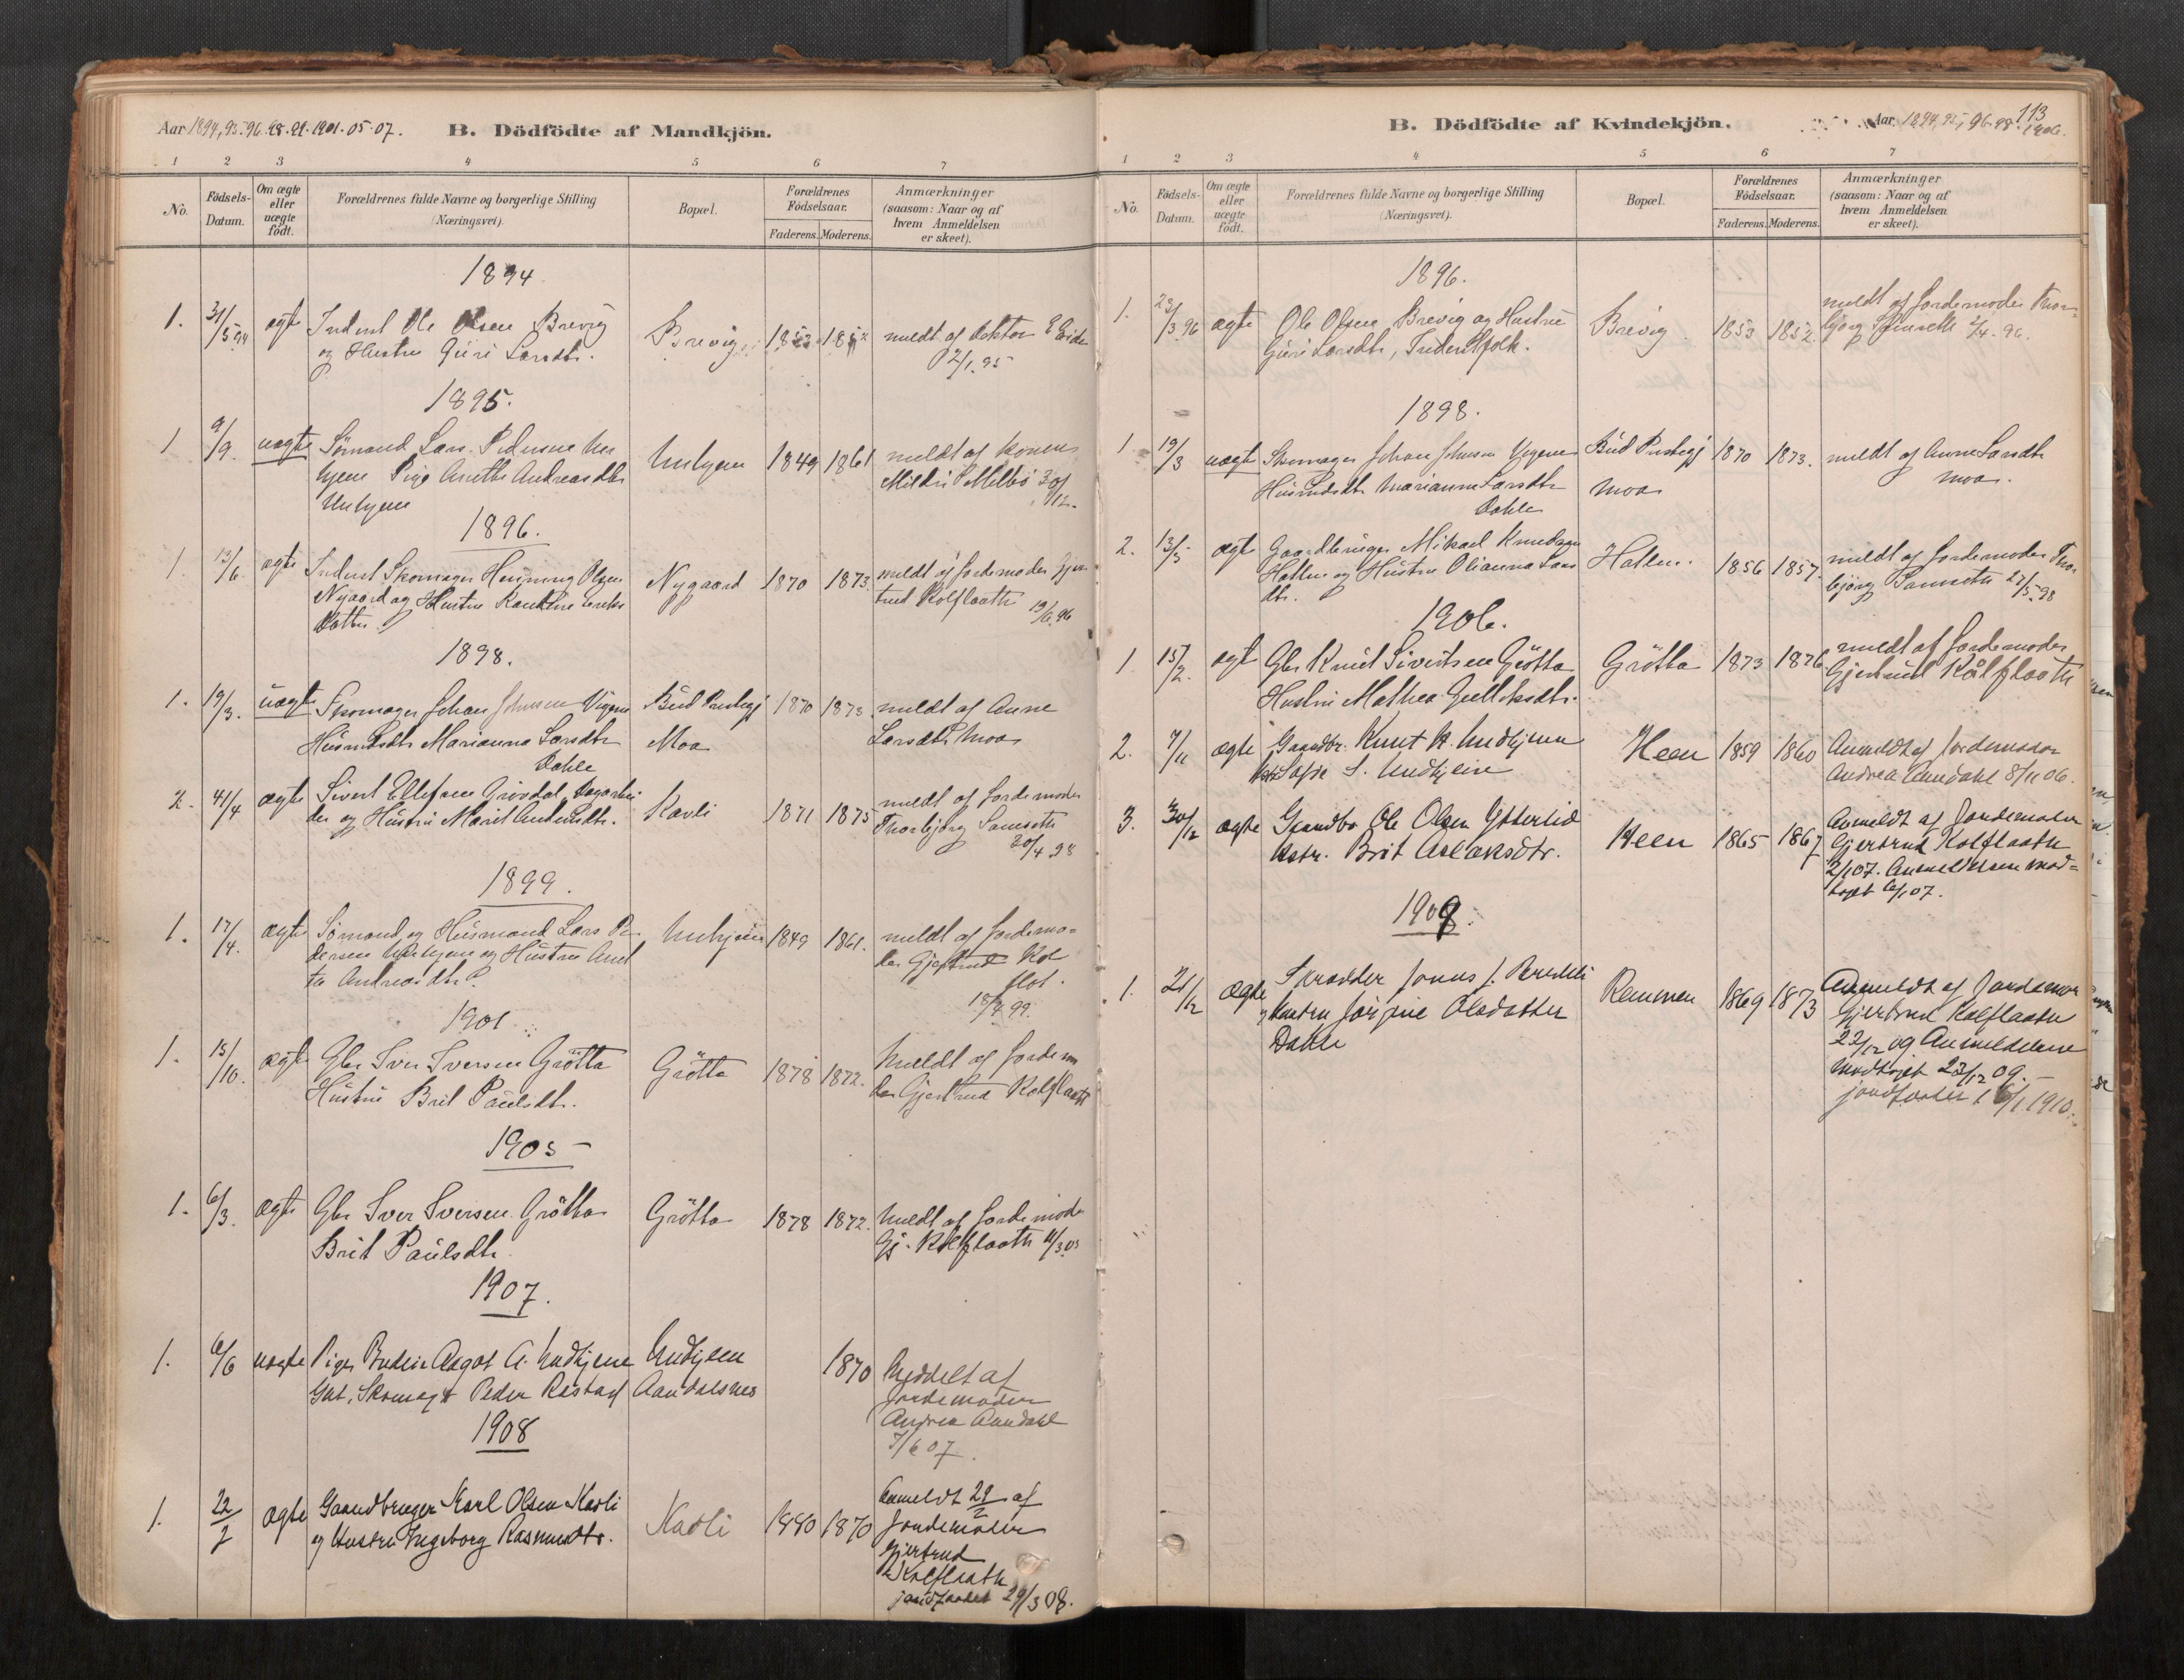 Aar 1894, 95. 96. 98. 99. 1901. 05. 07.
B. Dödfödte af Mandkjön.
1 2 3 4 5 6 7
No.
Födsels-
Datum.
Om ægte
eller
uægte
födt.
Forældrenes fulde Navne og borgerlige Stilling
(Næringsvei).
Bopæl.
Forældrenes
Födselsaar.
Faderens. Moderens.
Anmærkninger
(saasom: Naar og af
hvem Anmeldelsen
er skeet).
1894
1. 31/5 94 ægte Inderst Ole Olsen Brevig Brevig 1853 1852 meldt af Doktor Eide
og Hustru Guri Larsdtr. 2/1 95
1895.
1 9/9. uægte Sømand Lars Pedersen Un
hjem Pige Anette Andreasdtr Unhjem 1849 1861 meldt af konen
Unhjem Mildri Melbø 30/12.
1896.
1. 13/6. ægte Inderst Skomager Henning Olsen
Nygaard og Hustru Eriks Nygaard 1870 1873. meldt af Jordemoder Gjer
datter trud Kolflaath 19/6 96
1898.
1. 19/3. uægte Skomager Johan Johnsen Vigen Bud Prestegj 1870 1873. meldt af Anne
Husmdsdtr Marianna Larsdtr Moa Larsdtr Moa
Dahle
2. 41/4 ægte Sivert Ellefsen Grøvdal, Dagarbei
der og Hustru Marit Kavli 1871 1875 meldt af Jordemoder
Thorbjørg Sanseth
20/4 98
1899.
1. 17/4. ægte Sømand og Husmand Lars Pe- Unhjem 1849 1861. meldt af Jordemo-
dersen Unhjem og Hustru Anet der Gjertrud Kol
te Andreasdtr. flot.
18/4 99.
1901
1. 15/10. ægte Gbr Iver Iversen Grötta Grötta 1878 1872. Meldt af Jordemo
Hustru Brit Paulsdtr. der Gjertrud Kolflaath
1905 –
1. 6/3. ægte Gbr Iver Iversen Grötta Grötta 1878 1872. Meldt af Jordemoder
Brit Paulsdtr. Gj. Kolflaath 11/3 05
1907.
1. 6/6 uægte Pige Aagot A. Undhjem Undhjem 1870 Meddelt af
Gut, Skomager Peder Råstad Aandalsnes Jordemoder
Andrea Aandahl
7/6 07.
1908
1. 22/2 ægte Gaardbruger Karl Olsen Kavli Kavli 1880 1870 Anmeldt 29/2 af
og Hustru Ingeborg Rasmusdtr. Jordemoder
Gjertrud
Kolflaath
jordfæstet 29/3 08.
113
B. Dödfödte af Kvindekjön.
Aar 1894, 95, 96. 98. 1906.
1 2 3 4 5 6 7
No.
Födsels-
Datum.
Om ægte
eller
uægte
födt.
Forældrenes fulde Navne og borgerlige Stilling
(Næringsvei).
Bopæl.
Forældrenes
Födselsaar.
Faderens. Moderens.
Anmærkninger
(saasom: Naar og af
hvem Anmeldelsen
er skeet).
1896.
1. 23/3 96 ægte Ole Olsen Brevig og Hustru Brevig 1853 1852. meldt af Jordemoder Thor-
Guri Larsdtr, Inderstfolk. bjørg Sanseth 2/4. 96.
1898.
1. 19/3 uægte Skomager Johan Johnsen Vigen Bud Prestegj 1870 1873. meldt af Anne Larsdtr
Husmdsdtr Marianna Larsdtr Moa Moa.
Dahle
2. 13/5 ægte Gaardbruger Mikael Knudsen Hatlen. 1856 1857. meldt af Jordemoder Thor
Hatlen og Hustru Olianna Lars bjørg Sanseth 27/5 98
dtr.
1906.
1. 15/2. ægte Gbr Knut Sivertsen Grötta Grötta 1873 1876 meldt af Jordemoder
Hustru Mathea Gulliksdtr. Gjertrud Kålflaath
2. 7/11 ægte Gaardbr. Knut K. Undhjem Heen 1859 1860 Anmeldt af Jordemoder
Hstr Sofie S. Undhjem Andrea Aandahl 8/11 06.
3. 30/12 ægte Gaardbr Ole Olsen Ytterlid Heen 1865 1867 Anmeldt af Jordemoder
Hstr. Brit Aslaksdtr. Gjertrud Kolflaath
2/1 07. Anmeldelsen mod-
taget 6/1 07.
1909.
1. 21/12 ægte Skrædder Jonas J. Remmen 1869 1873 Anmeldt af Jordemor
og Hustru Jørgine Olsdatter Gjertrud Kolflaath
Dahle 22/12 09 Anmeldelsen
modtaget 23/12 09. –
jordfæstet 6/1 1910.